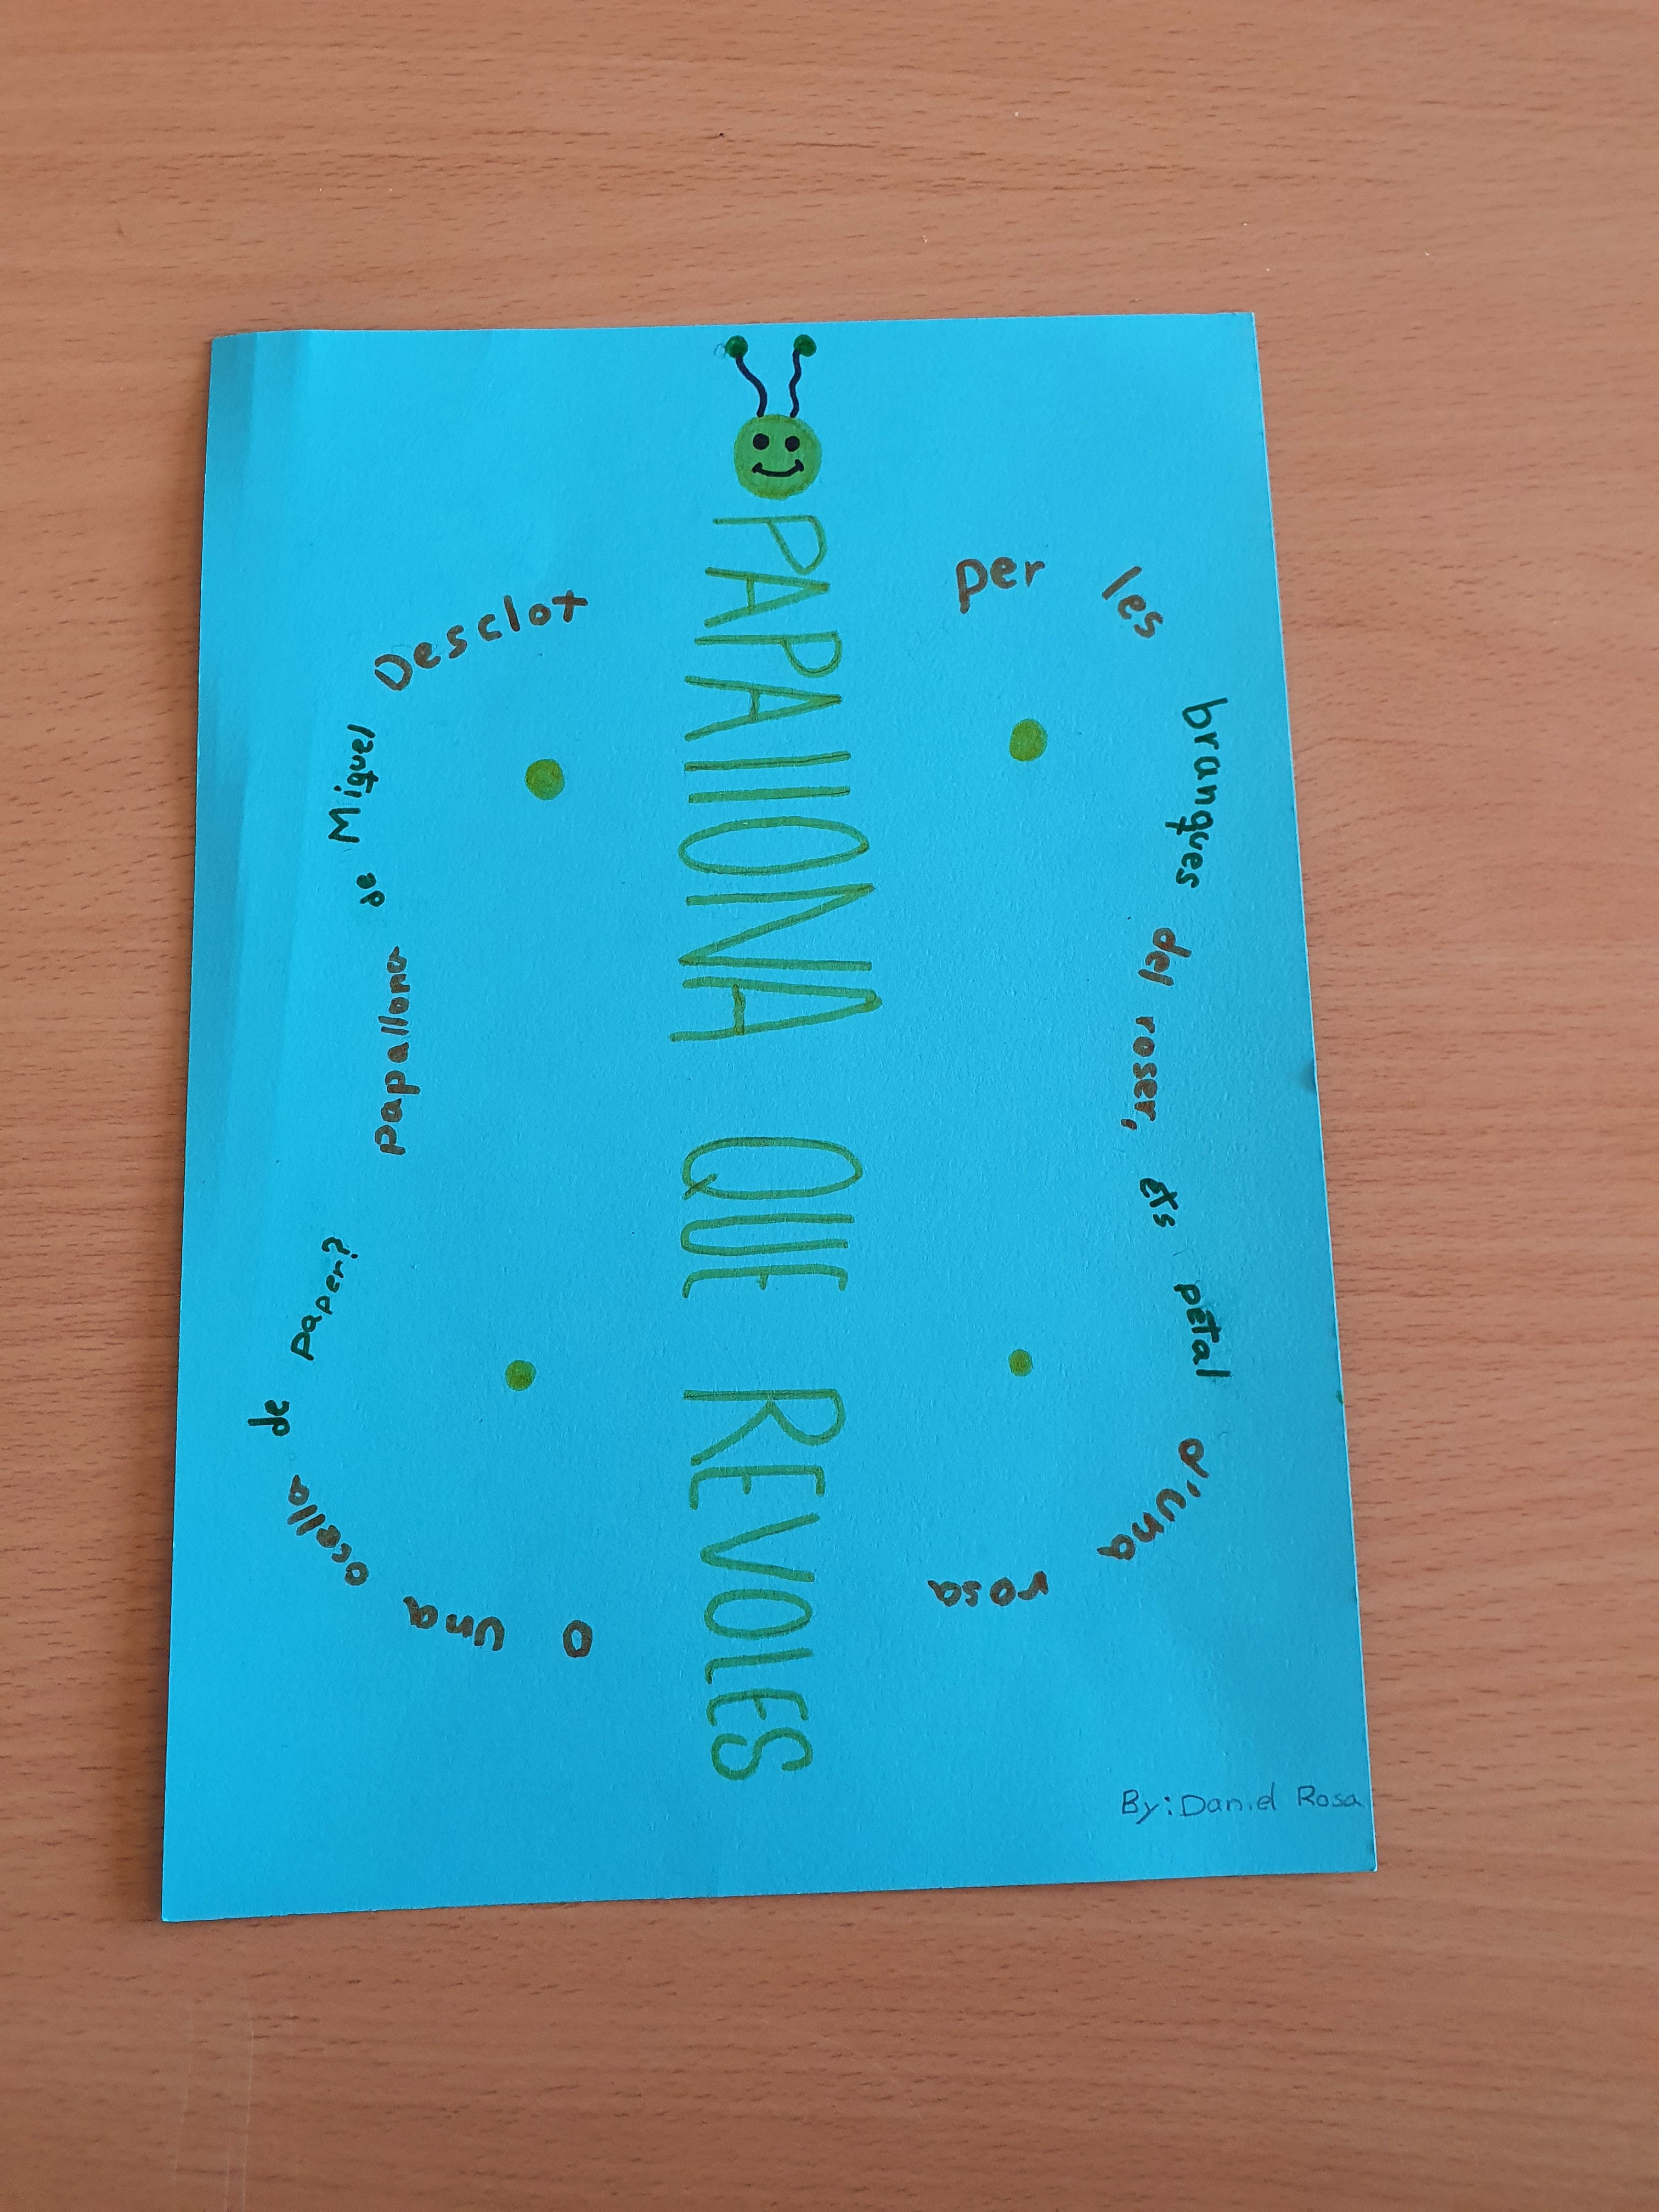 PAPALLONA QUE REVOLES
per les branques del roser, ets pètal d'una rosa
o una ocella de paper?
papallona de Miquel Desclot
By: Daniel Rosa